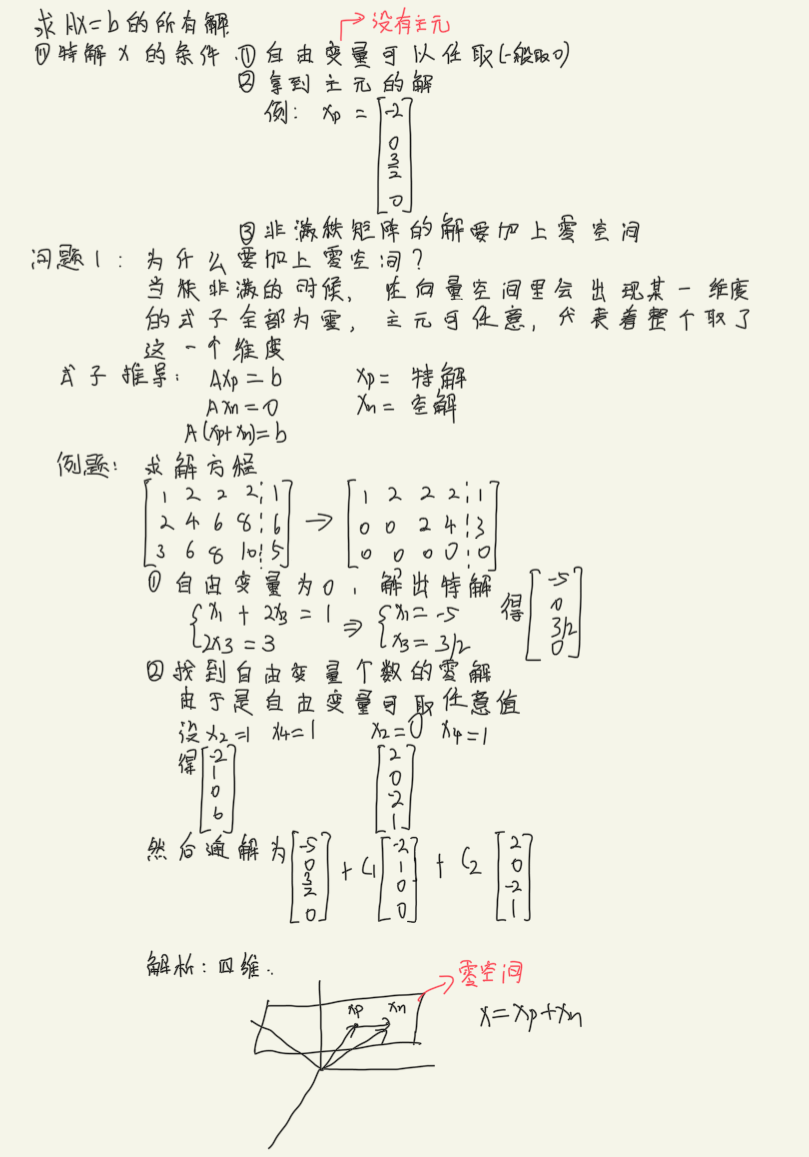 求AX=b的所有解
→没有主元
(1)特解X的条件.① 自由变量可以任取(一般取0)
② 拿到主元的解
例: xp = [-2 0 3/2 0]
③ 非满秩矩阵的解要加上零空间
问题1: 为什么要加上零空间?
当秩非满的时候, 在向量空间里会出现某一维度
的式子全部为零, 主元可任意, 代表着整个取了
这一个维度
式子推导: Axp = b xp = 特解
Axn = 0 xn = 空解
A(xp+xn)=b
例题: 求解方程
[1 2 2 2 ¦ 1 [1 2 2 2 ¦ 1
2 4 6 8 ¦ 6 → 0 0 2 4 ¦ 3
3 6 8 10 ¦ 5] 0 0 0 0 ¦ 0]
① 自由变量为0, 解出特解
{x1 + 2x3 = 1 ⇒ {x1 = -5 得 [-5 0 3/2 0]
{2x3 = 3 {x3 = 3/2
② 找到自由变量个数的零解
由于是自由变量可取任意值
设x2=1 x4=1 x2=0 x4=1
得[-2 1 0 0] [2 0 -2 1]
然后通解为[-5 0 3/2 0] + C1[-2 1 0 0] + C2[2 0 -2 1]
解析: 四维..
→零空间
xp xn
x=xp+xn